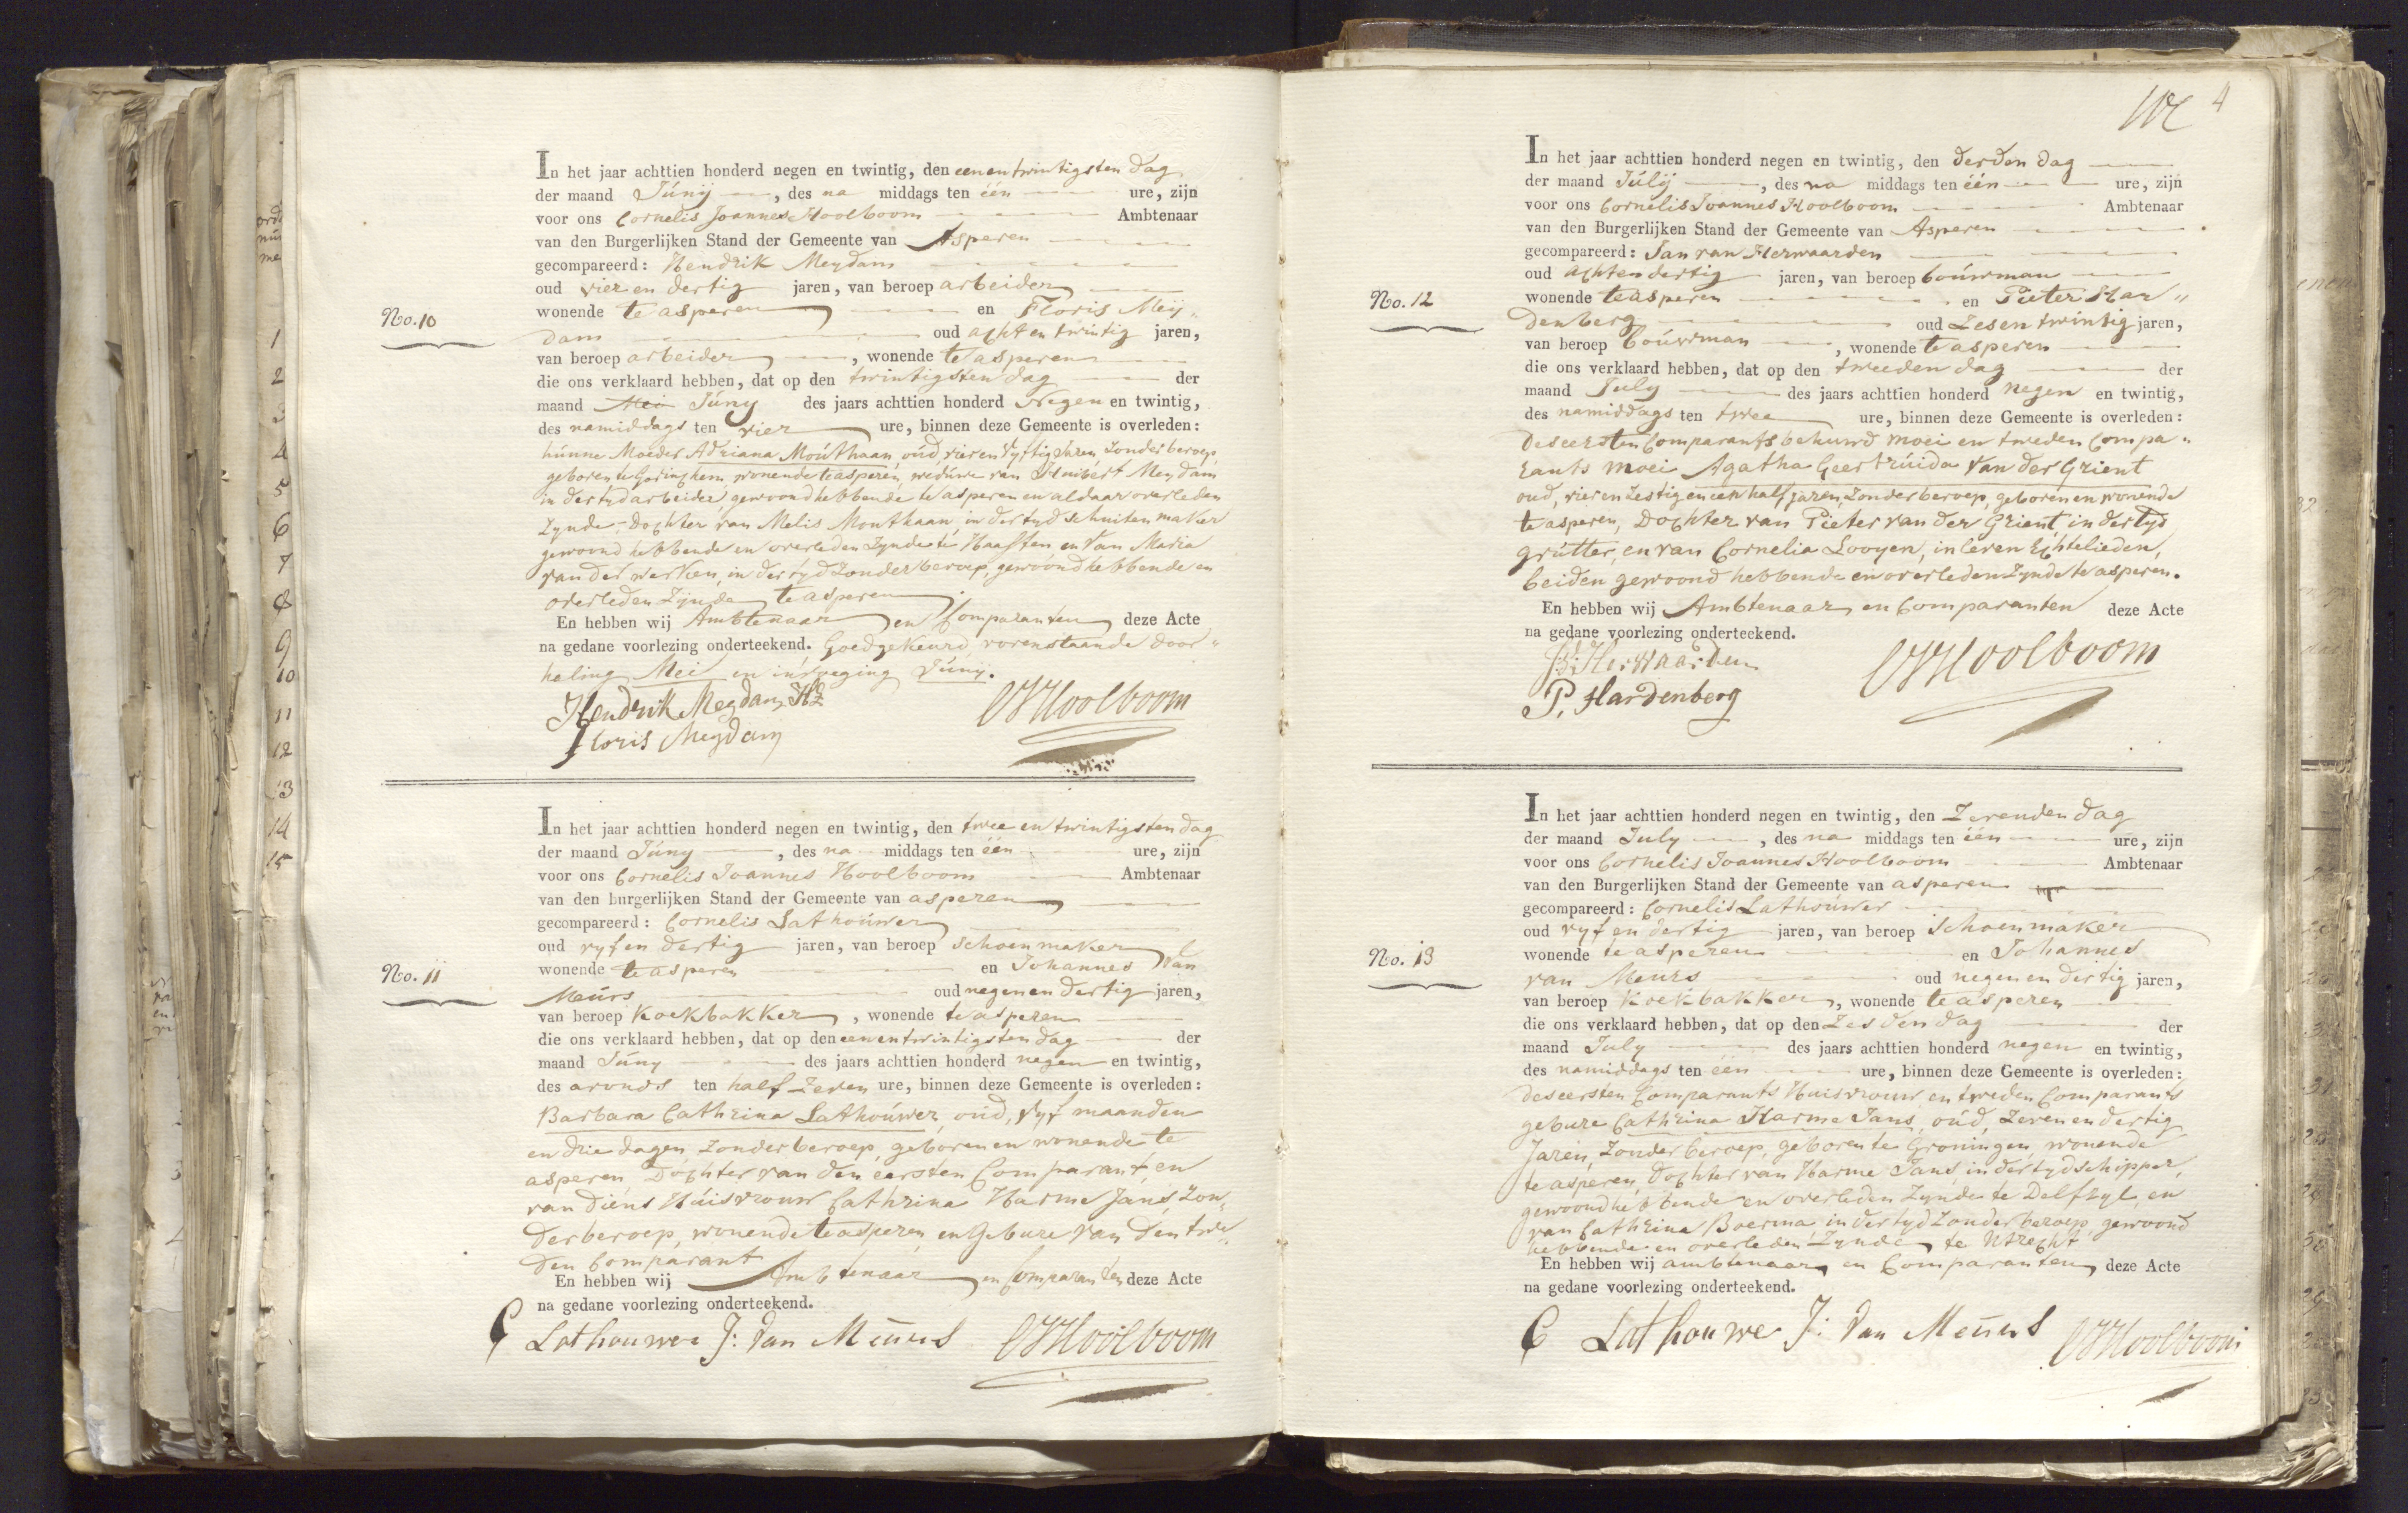 In het jaar achttien honderd negen en twintig, den eenentwintigsten dag
der maand Júnij, des na middags ten één ure, zijn
voor ons Cornelis Joannes Hoolboom Ambtenaar
van den Burgerlijken Stand der Gemeente van Asperen
gecompareerd: Hendrik Meydam
oud vier en dertig jaren, van beroep arbeider
wonende te asperen en Floris Meij„
No. 10
dam oud acht en twintig jaren,
van beroep arbeider, wonende te asperen
die ons verklaard hebben, dat op den twintigsten dag der
maand Mei Júny des jaars achttien honderd Negen en twintig,
des namiddags ten vier ure, binnen deze Gemeente is overleden:
húnne Moeder Adriana Moúthaan, oúd, vier en vyftig Jaren, Zonder beroep,
geboren te Gorinchem, wonende te asperen, weduwe van Huibert Meydam
in der tyd arbeider, gewoond hebbende te asperen en aldaar overleden
Zynde, Dochter van Melis Monthaan in der tyd Schuiten maker
gewoond hebbende en overleden Zynde te Haaften, en Van Maria
van der werken, in der tyd Zonder beroep, gewoond hebbende en
overleden Zijnde te asperen.
En hebben wij Ambtenaar en Comparanten deze Acte
na gedane voorlezing onderteekend. Goedgekeurd, vorenstaande door„
haling Mei en invoeging Júnij.
Hendrik Meydam Hz
CJHoolboom
Floris Meydam
In het jaar achttien honderd negen en twintig, den twee en twintigsten dag
der maand Júny, des na middags ten één ure, zijn
voor ons Cornelis Joannes Hoolboom Ambtenaar
van den burgerlijken Stand der Gemeente van asperen
gecompareerd: Cornelis Lathoúwer
oud vyf en dertig jaren, van beroep schoenmaker
No. 11
wonende te asperen en Johannes Van
Meúrs oud negen en dertig jaren,
van beroep Koekbakker, wonende te asperen
die ons verklaard hebben, dat op den eenentwintigsten dag der
maand Júny des jaars achttien honderd negen en twintig,
des avonds ten half Zeven ure, binnen deze Gemeente is overleden:
Barbara Cathrina Lathoúwer, oúd, vyf maanden
en drie dagen, Zonder beroep, geboren en wonende te
asperen, Dochter van den eersten Comparant, en
van diens Húisvrouw Cathrina Harme Jans, Zon„
der beroep, wonende te asperen, en Gebure van den twe„
den Comparant
En hebben wij Ambtenaar en Comparanten deze Acte
na gedane voorlezing onderteekend.
C Lathouwer J: Van Meúrs CJHoolboom
4
In het jaar achttien honderd negen en twintig, den derden dag
der maand Júlij, des na middags ten één ure, zijn
voor ons Cornelis Joannes Hoolboom Ambtenaar
van den Burgerlijken Stand der Gemeente van Asperen
gecompareerd: Jan van Herwaarden
oud achtendertig jaren, van beroep boúwman
No. 12
wonende te asperen en Pieter Har„
denberg oud Zesentwintig jaren,
van beroep boúwman, wonende te asperen
die ons verklaard hebben, dat op den tweeden dag der
maand July des jaars achttien honderd negen en twintig,
des namiddags ten twee ure, binnen deze Gemeente is overleden:
des eersten Comparants behuwd moei en tweden Compa„
rants moei Agatha Geertrúida Van der Grient
oud, vier en Zestig en een half jaren, Zonder beroep, geboren en wonende
te asperen, Dochter van Pieter van der Grient in der tyd
grútter, en van Cornelia Looyen, in leven Echtelieden,
beiden gewoond hebbende en overleden Zynde te asperen.
En hebben wij Ambtenaar en Comparanten deze Acte
na gedane voorlezing onderteekend.
Herwaarden
CJHoolboom
P. Hardenberg
In het jaar achttien honderd negen en twintig, den Zevenden dag
der maand July, des na middags ten één ure, zijn
voor ons Cornelis Joannes Hoolboom Ambtenaar
van den Burgerlijken Stand der Gemeente van asperen
gecompareerd: Cornelis Lathoúwer
oud vyf en dertig jaren, van beroep Schoenmaker
No. 13
wonende te asperen en Johannes
van Meurs oud negen en dertig jaren,
van beroep Koekbakker, wonende te asperen
die ons verklaard hebben, dat op den Zesden dag der
maand July des jaars achttien honderd negen en twintig,
des namiddags ten één ure, binnen deze Gemeente is overleden:
des eersten Comparants Huisvrouw en tweden Comparants
gebure Cathrina Harme Jans, oúd, Zeven en dertig
Jaren, Zonder beroep, geboren te Groningen, wonende
te asperen, Dochter van Harme Jans, in der tyd schipper,
gewoond hebbende en overleden Zynde te Delfzyl, en
van Cathrina Boerma, in der tyd Zonder beroep, gewoond
hebbende en overleden Zynde te Utrecht
En hebben wij ambtenaar en Comparanten deze Acte
na gedane voorlezing onderteekend.
C Lathouwer J: Van Meúrs CJHoolboom
1
2
3
4
5
6
7
8
9
10
11
12
13
14
15